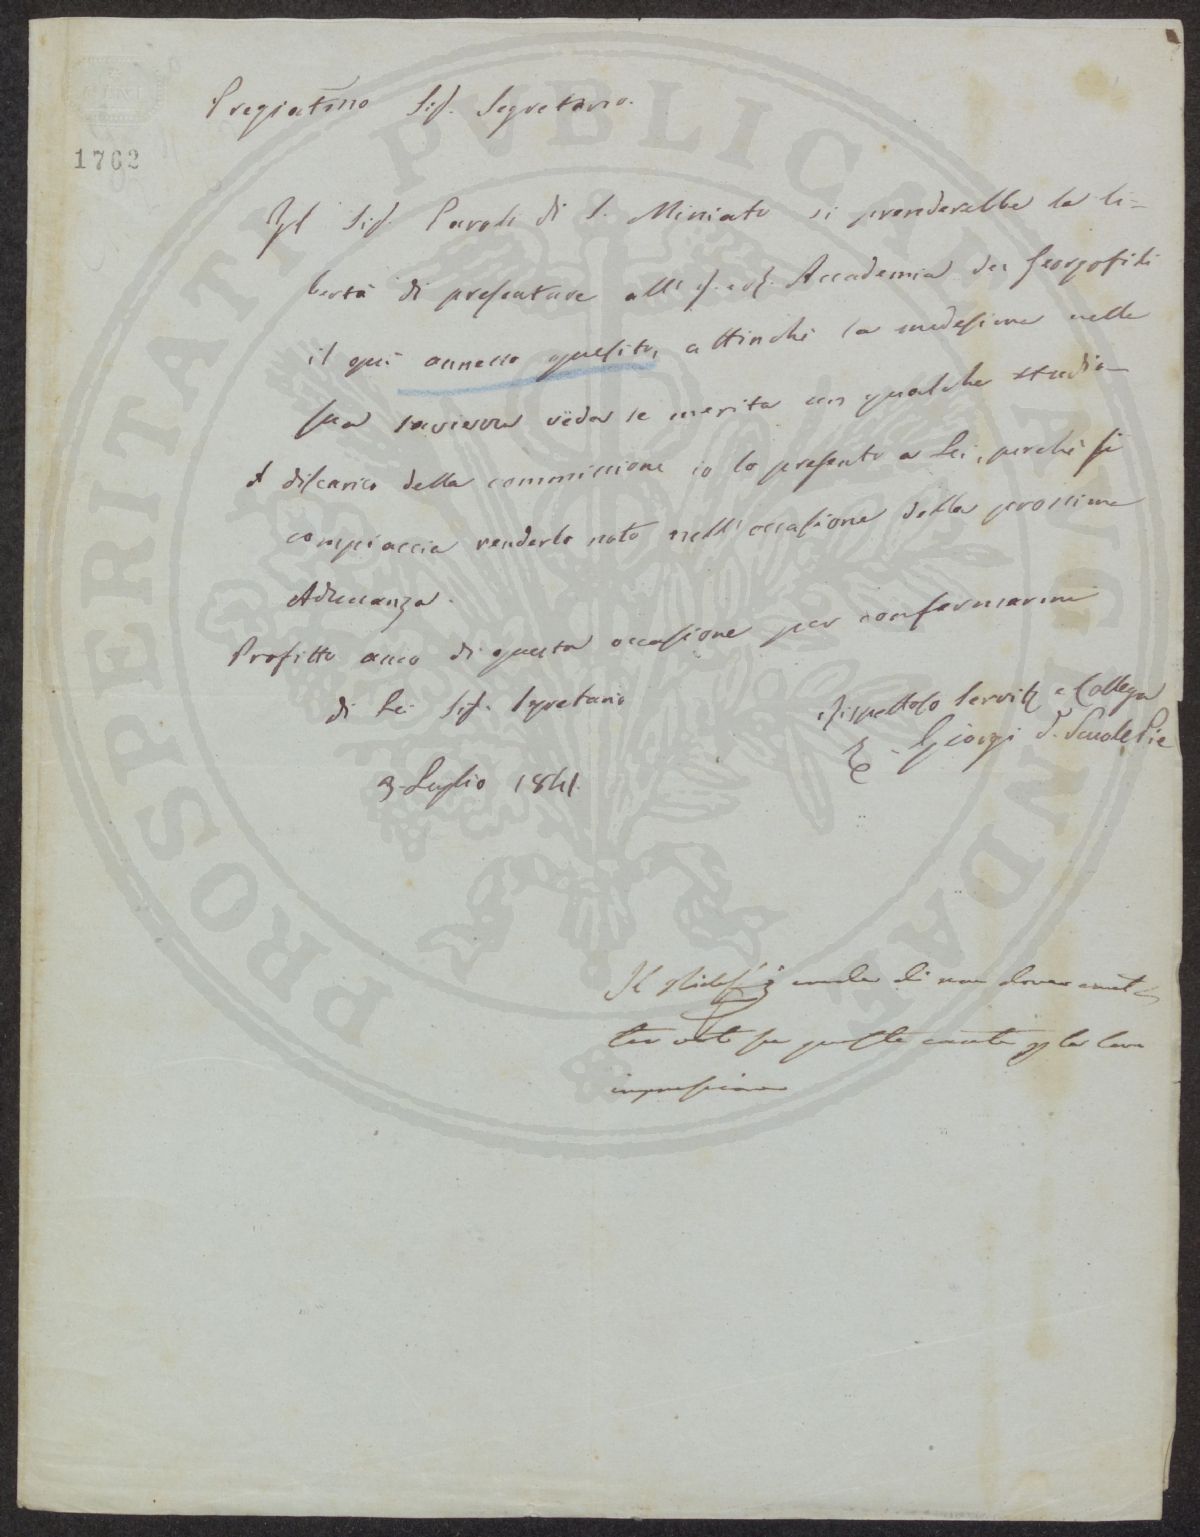 PROSPERITATI PVBLICAE AVGENDAE
1762
Pregiatmo Sig. Segretario.
Il Sig. Caroli di S. Miniato si prenderebbe la li-
bertà di presentare all' I. e R. Accademia dei Georgofili
il quì annesso quesito, affinchè la medesima nella
sua saviezza veda se merita un qualche studio
A discarico della commissione io lo presento a Lei, perchè si
compiaccia renderlo noto nell' occasione della prossima
Adunanza.
Profitto anco di questa occasione per confermarmi
di Lei Sig. Segretario
rispettoso Servitre e Collega
E. Giorgi d. Scuole Pie
3 Luglio 1841
Il di non dover emet-
ter voti su questa per la